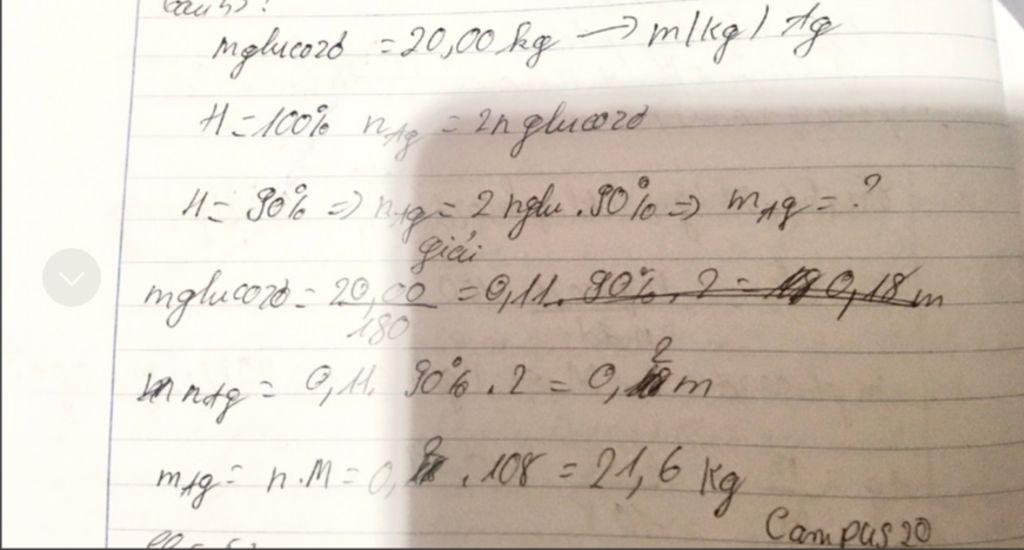 mglucozơ = 20,00 kg → m(kg) Ag
H = 100% nAg = 2nglucozơ
H = 90% => nAg = 2 nglu . 90% => mAg = ?
giải
mglucozơ = 20,00/180 = 0,11 . 90% . 2 = 0,18 m
nAg = 0,11 . 90% . 2 = 0,2 m
mAg = n.M = 0,2 . 108 = 21,6 kg
Campus20